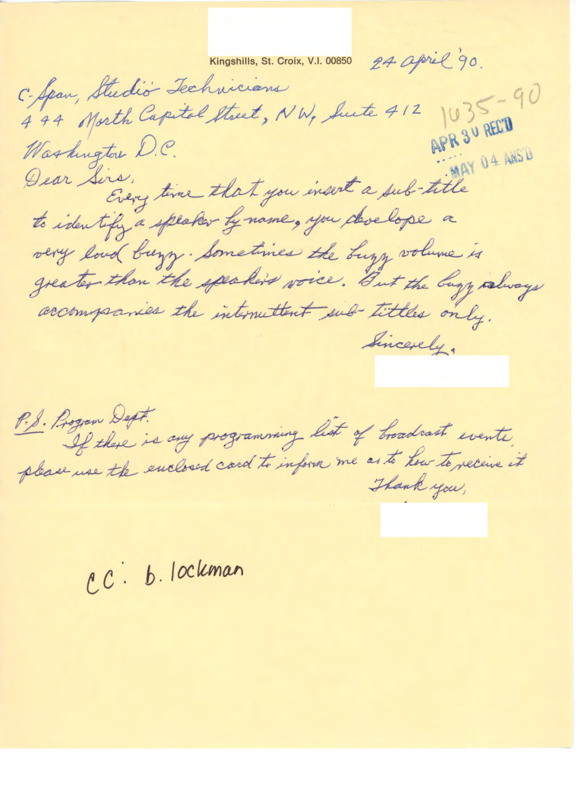 Kingshills, St. Croix, V.I. 00850
24 April '90.
C-Span, Studio Technicians
444 North Capitol Street, NW, Suite 412
1035-90
APR 30 REC'D
Washington D.C.
MAY 04 ANS'D
Dear Sirs,
Every time that you insert a sub-title
to identify a speaker by name, you develope a
very loud buzz. Sometimes the buzz volume is
greater than the speaker's voice. But the buzz always
accompanies the intermittent sub-tittles only.
Sincerely,
P.S. Program Dept.
If there is any programming list of broadcast events,
please use the enclosed card to inform me as to how to receive it
Thank you,
CC: b. lockman